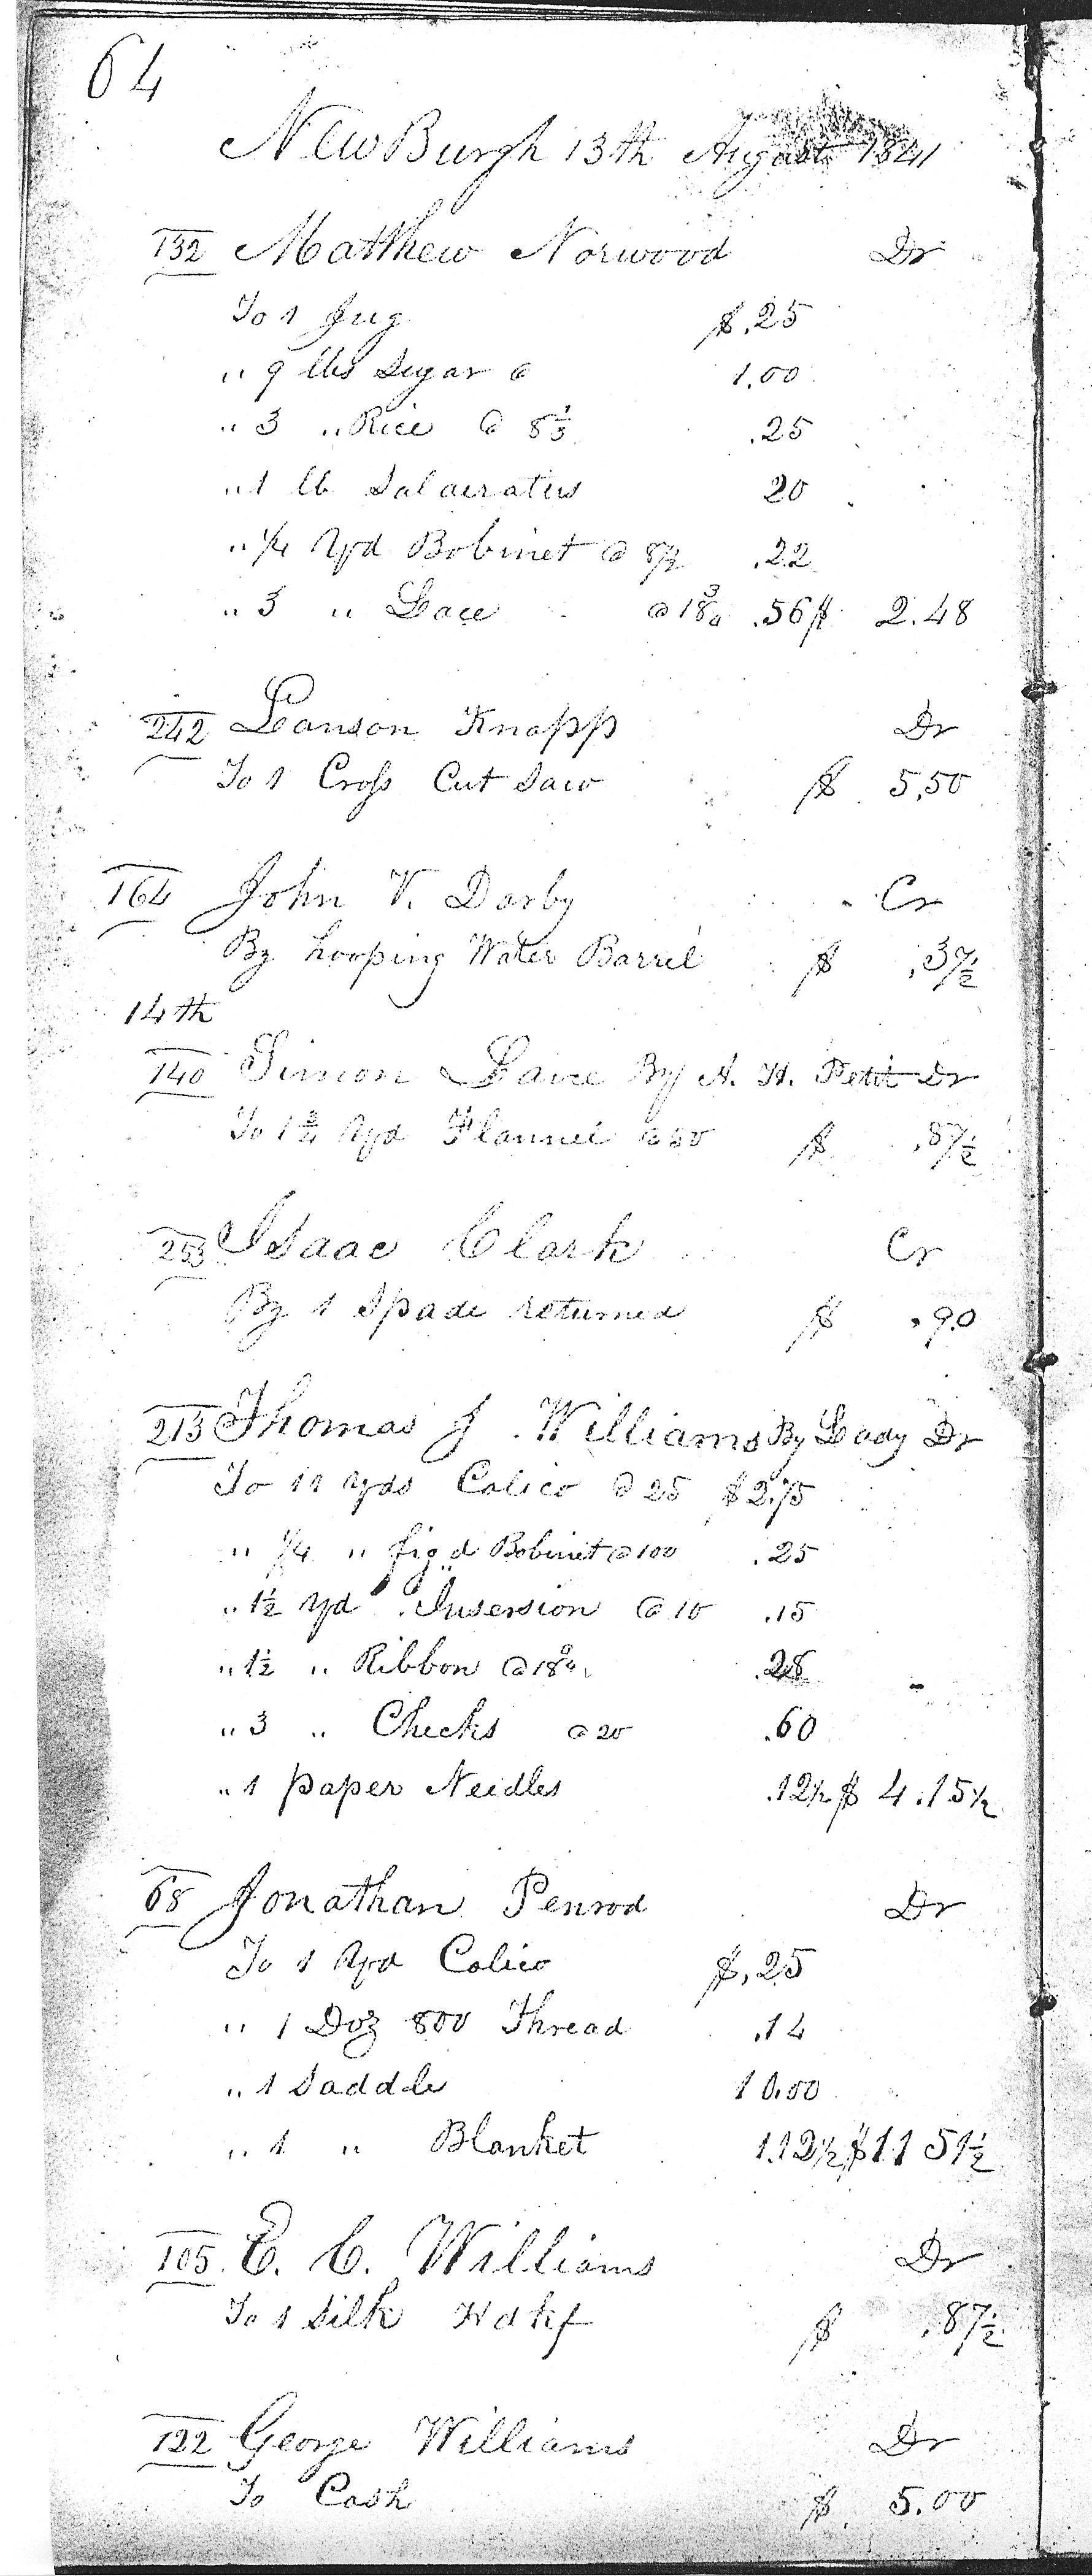 64
NewBurgh 13th August 1841
132 Matthew Norwood Dr
To 1 Jug $.25
" 9 lbs Sugar @ 1.00
" 3 " Rice @ 8⅓ .25
" 1 lb Salaeratus 20
" ¼ Yd Bobinet @ .22
" 3 " Lace @ 18¾ .56 $ 2.48
242 Lanson Knapp Dr
To 1 Cross Cut Saw $ 5,50
164 John V. Darby Cr
By hooping Water Barrel $ .37½
14th
140 Simon Lane By A. H. Petit Dr
To 1¾ Yd Flannel @ 50 $ .87½
253 Isaac Clark Cr
By 1 Spade returned $ .90
213 Thomas J. Williams By Lady Dr
To 11 Yds Calico @ 25 $2.75
" ¼ " fig'd Bobinet @ 100 .25
" 1½ Yd Insersion @ 10 .15
" 1½ " Ribbon @ 18¾ .28
" 3 " Checks @ 20 .60
" 1 paper Needles .12½ $ 4.15½
68 Jonathan Penrod Dr
To 1 Yd Calico $.25
" 1 Doz 800 Thread .14
" 1 Saddle 10.00
" 1 " Blanket 1.12½ $11 51½
105 C. C. Williams Dr
To 1 Silk Hdkf $ .87½
122 George Williams Dr
To Cash $ 5.00